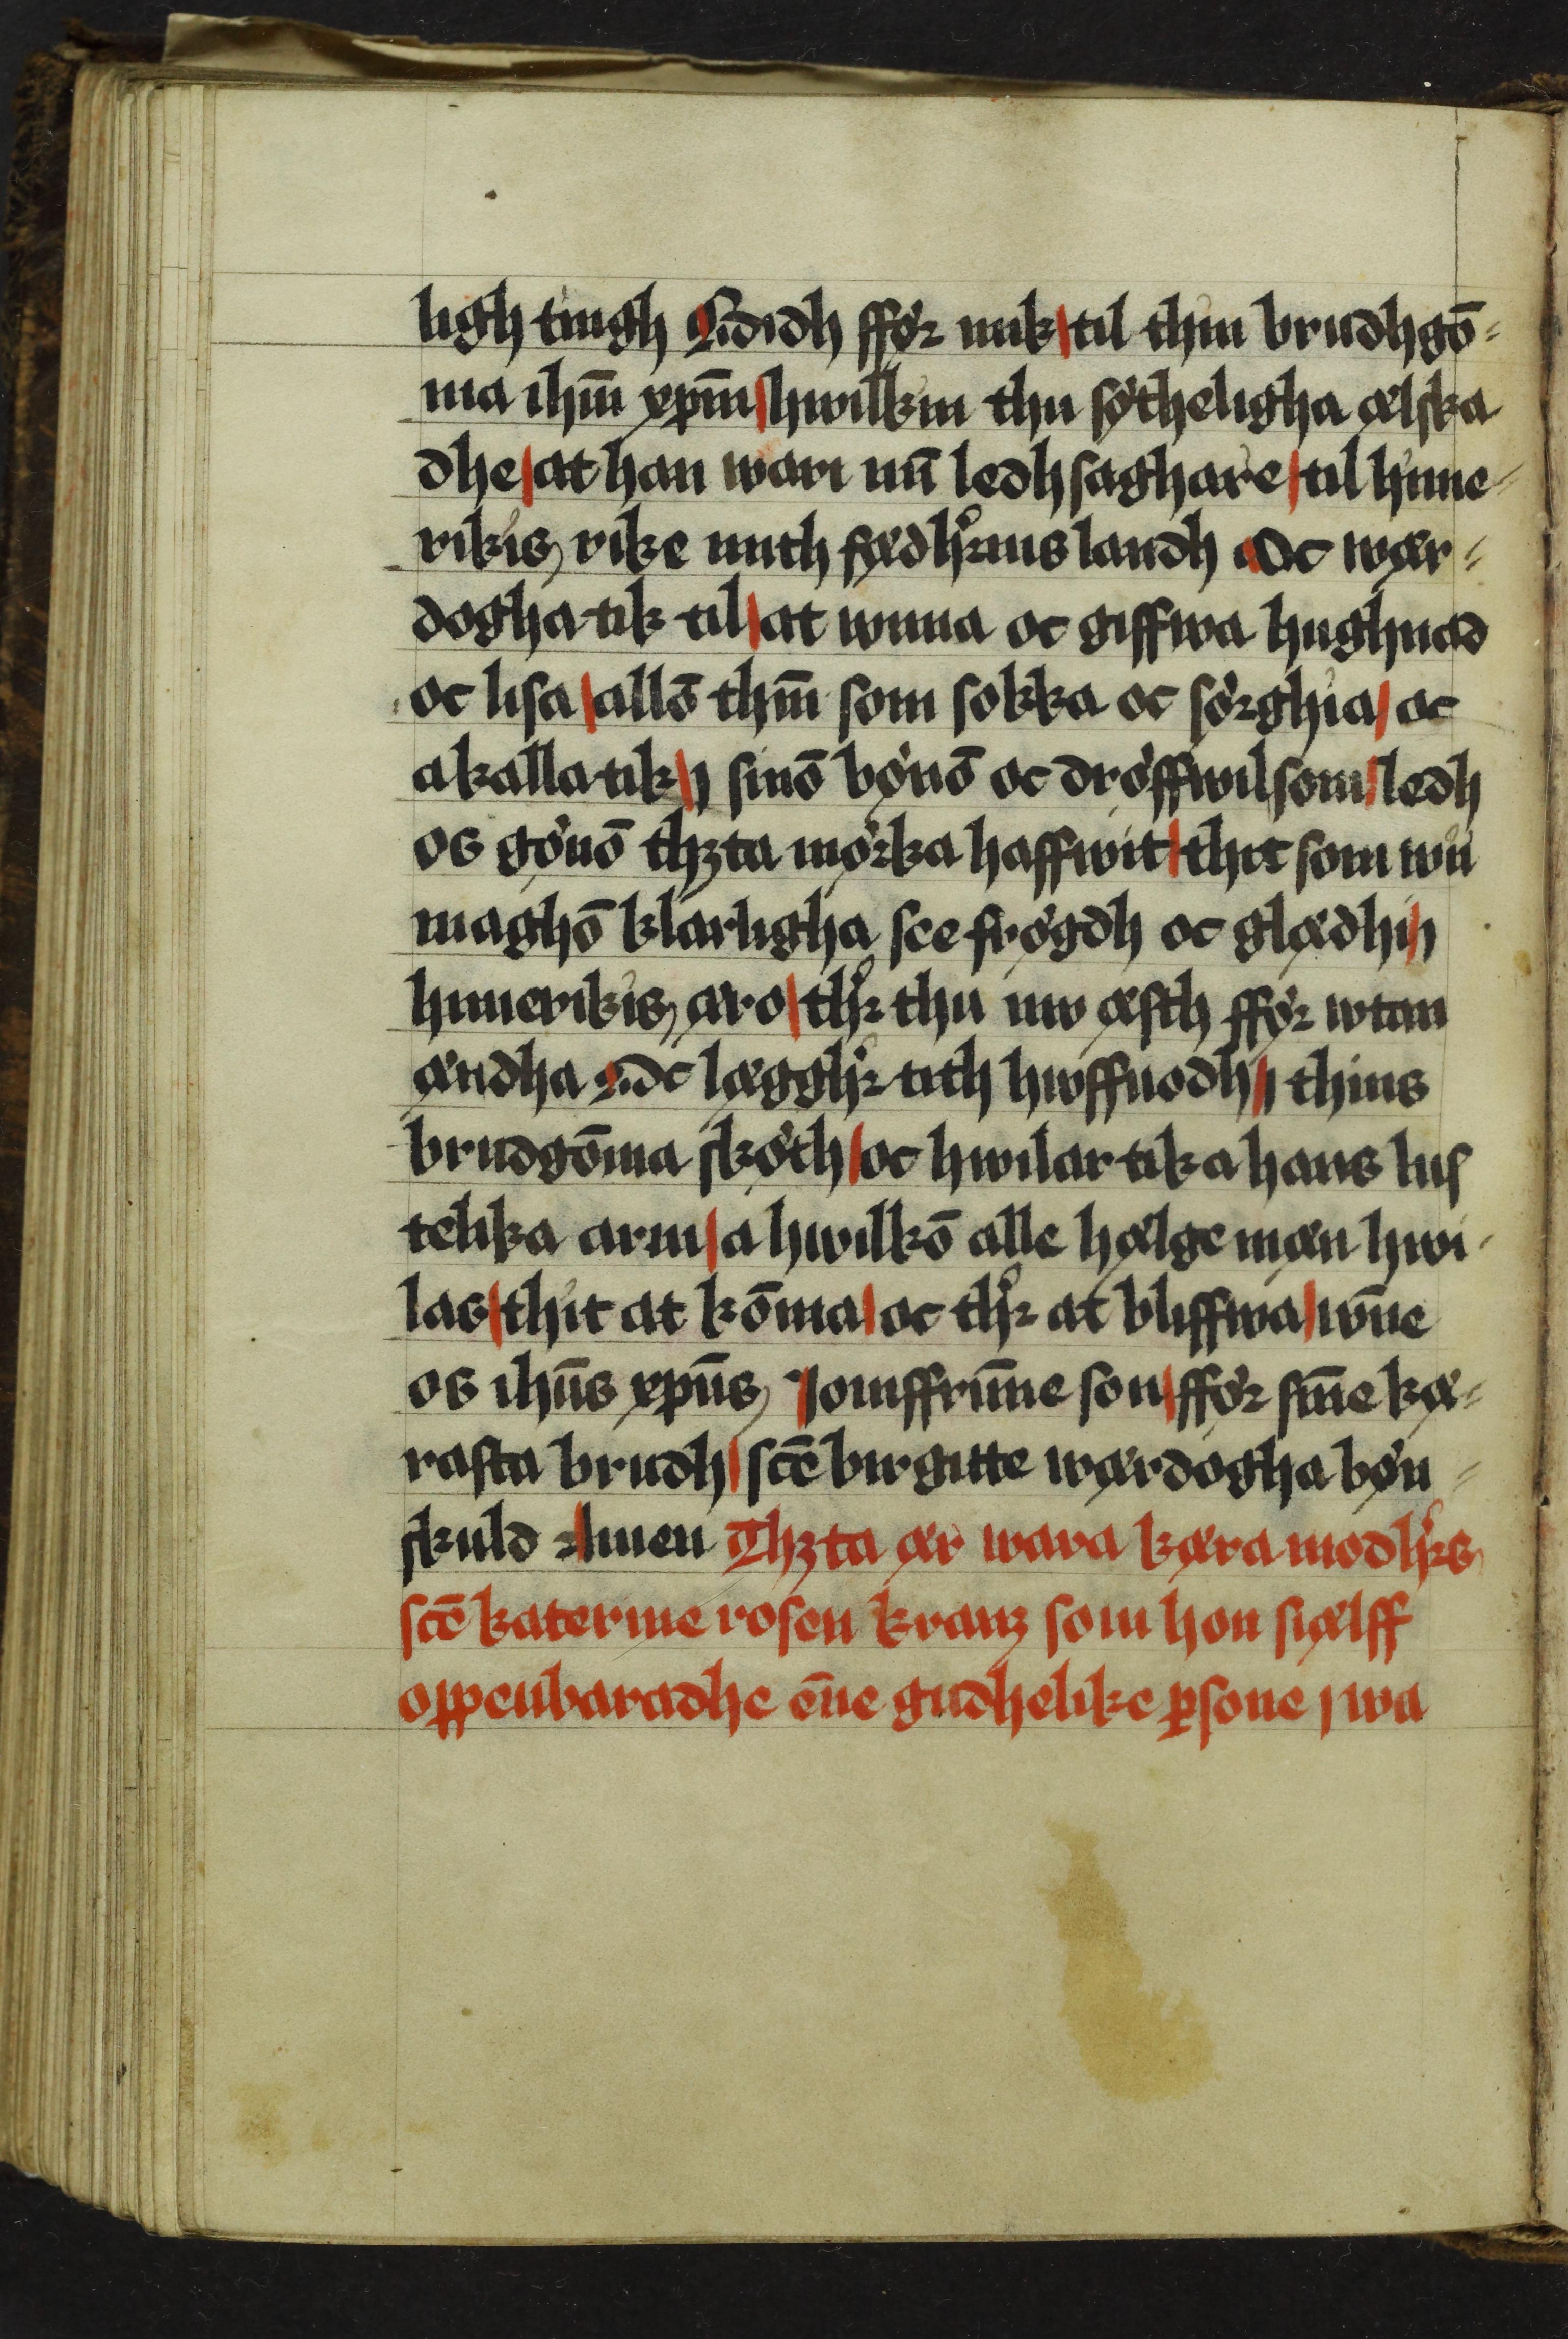 ligh tingh Bididh ffør mik til thin brudhgō-
ma ihm̄ xpm̄ hwilkin thu søtheligha ælska
dhe at han wari min̄ ledhsaghare til hime-
rikis rike mith fædhrnis landh Oc wær-
dogha tik til at wnna oc giffwa hughnad
oc lisa allō thm̄ som sokka oc sørghia oc
akalla tik j sinō bønō oc drøffwilsom ledh
os gønō thzta mørka haffwit thit som wii
maghō klarligha see frøgdh oc glædhi j
himerikis æro thr thu nw æsth ffør wtan
ændha Oc læggher tith hwffuodh j thins
brudgōma skøth oc hwilar tik a hans lus
telika arm a hwilkō alle hælge mæn hwi-
las thit at kōma oc thr at bliffwa wn̄e
os ihūs xpūs Jomffrun̄e son ffør sin̄e kæ-
rasta brudh scē birgitte wærdogha bøn-
skuld Amen Thzta ær wara kæra modhrs
scē katerine rosen kranz som hon siælff
oppenbaradhe en̄e gudhelike psone j wa